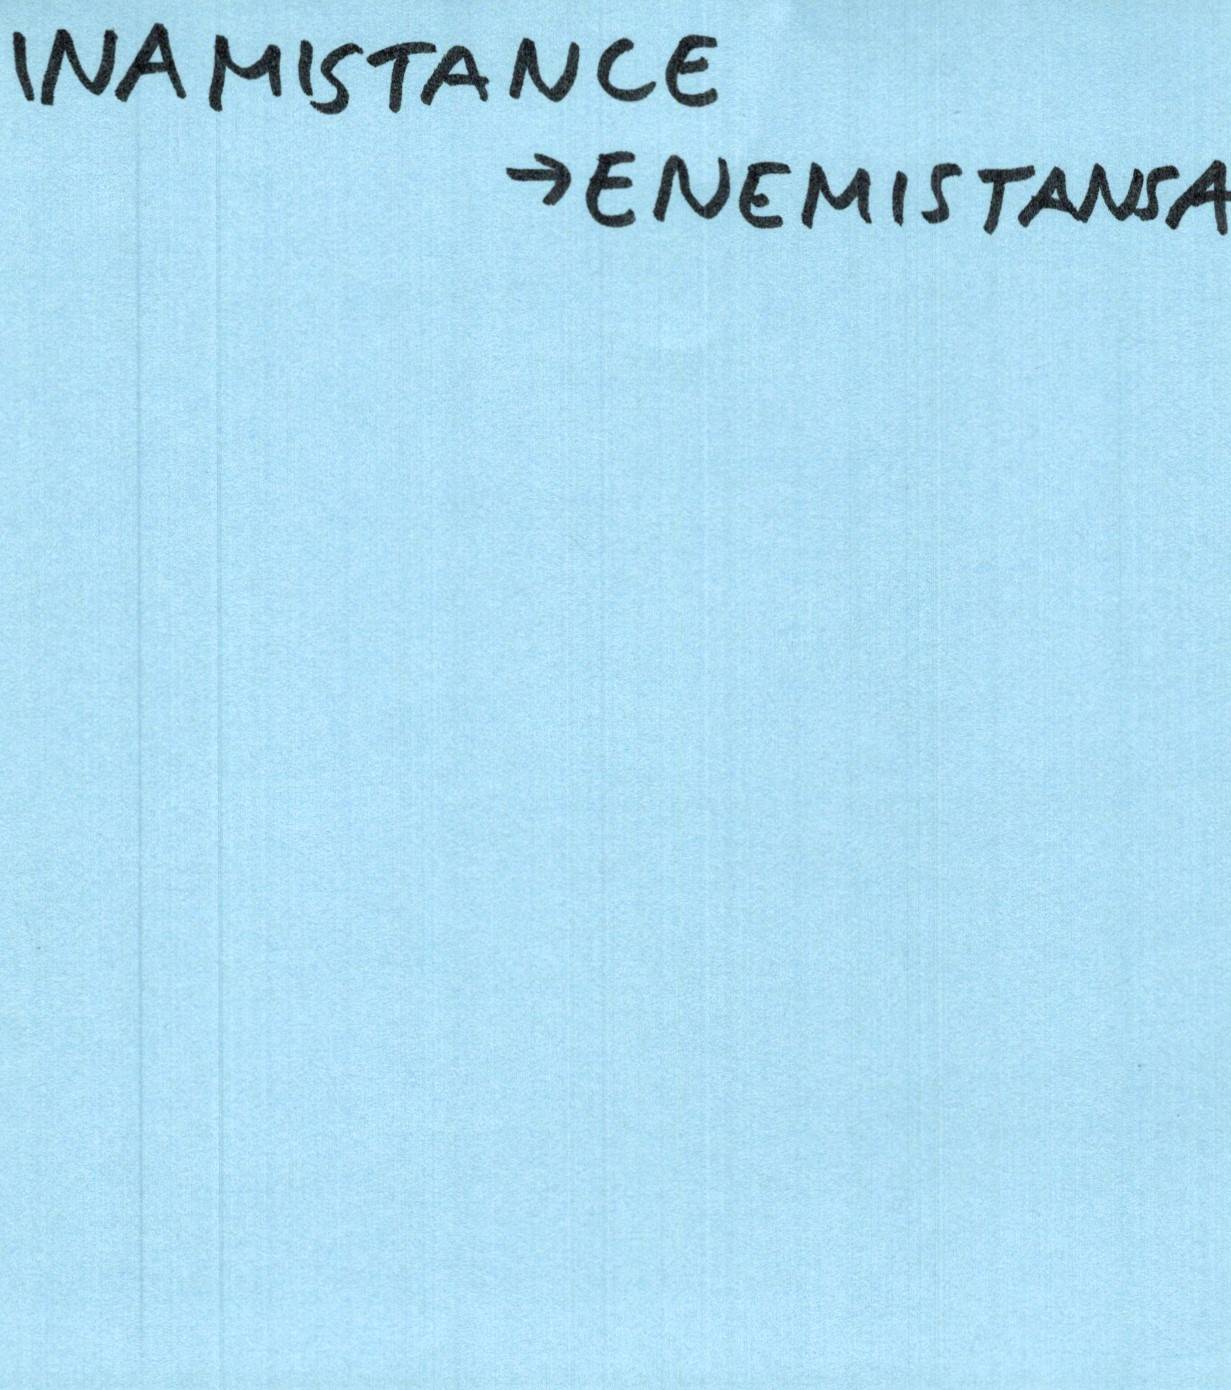 INAMISTANCE
→ENEMISTANSA